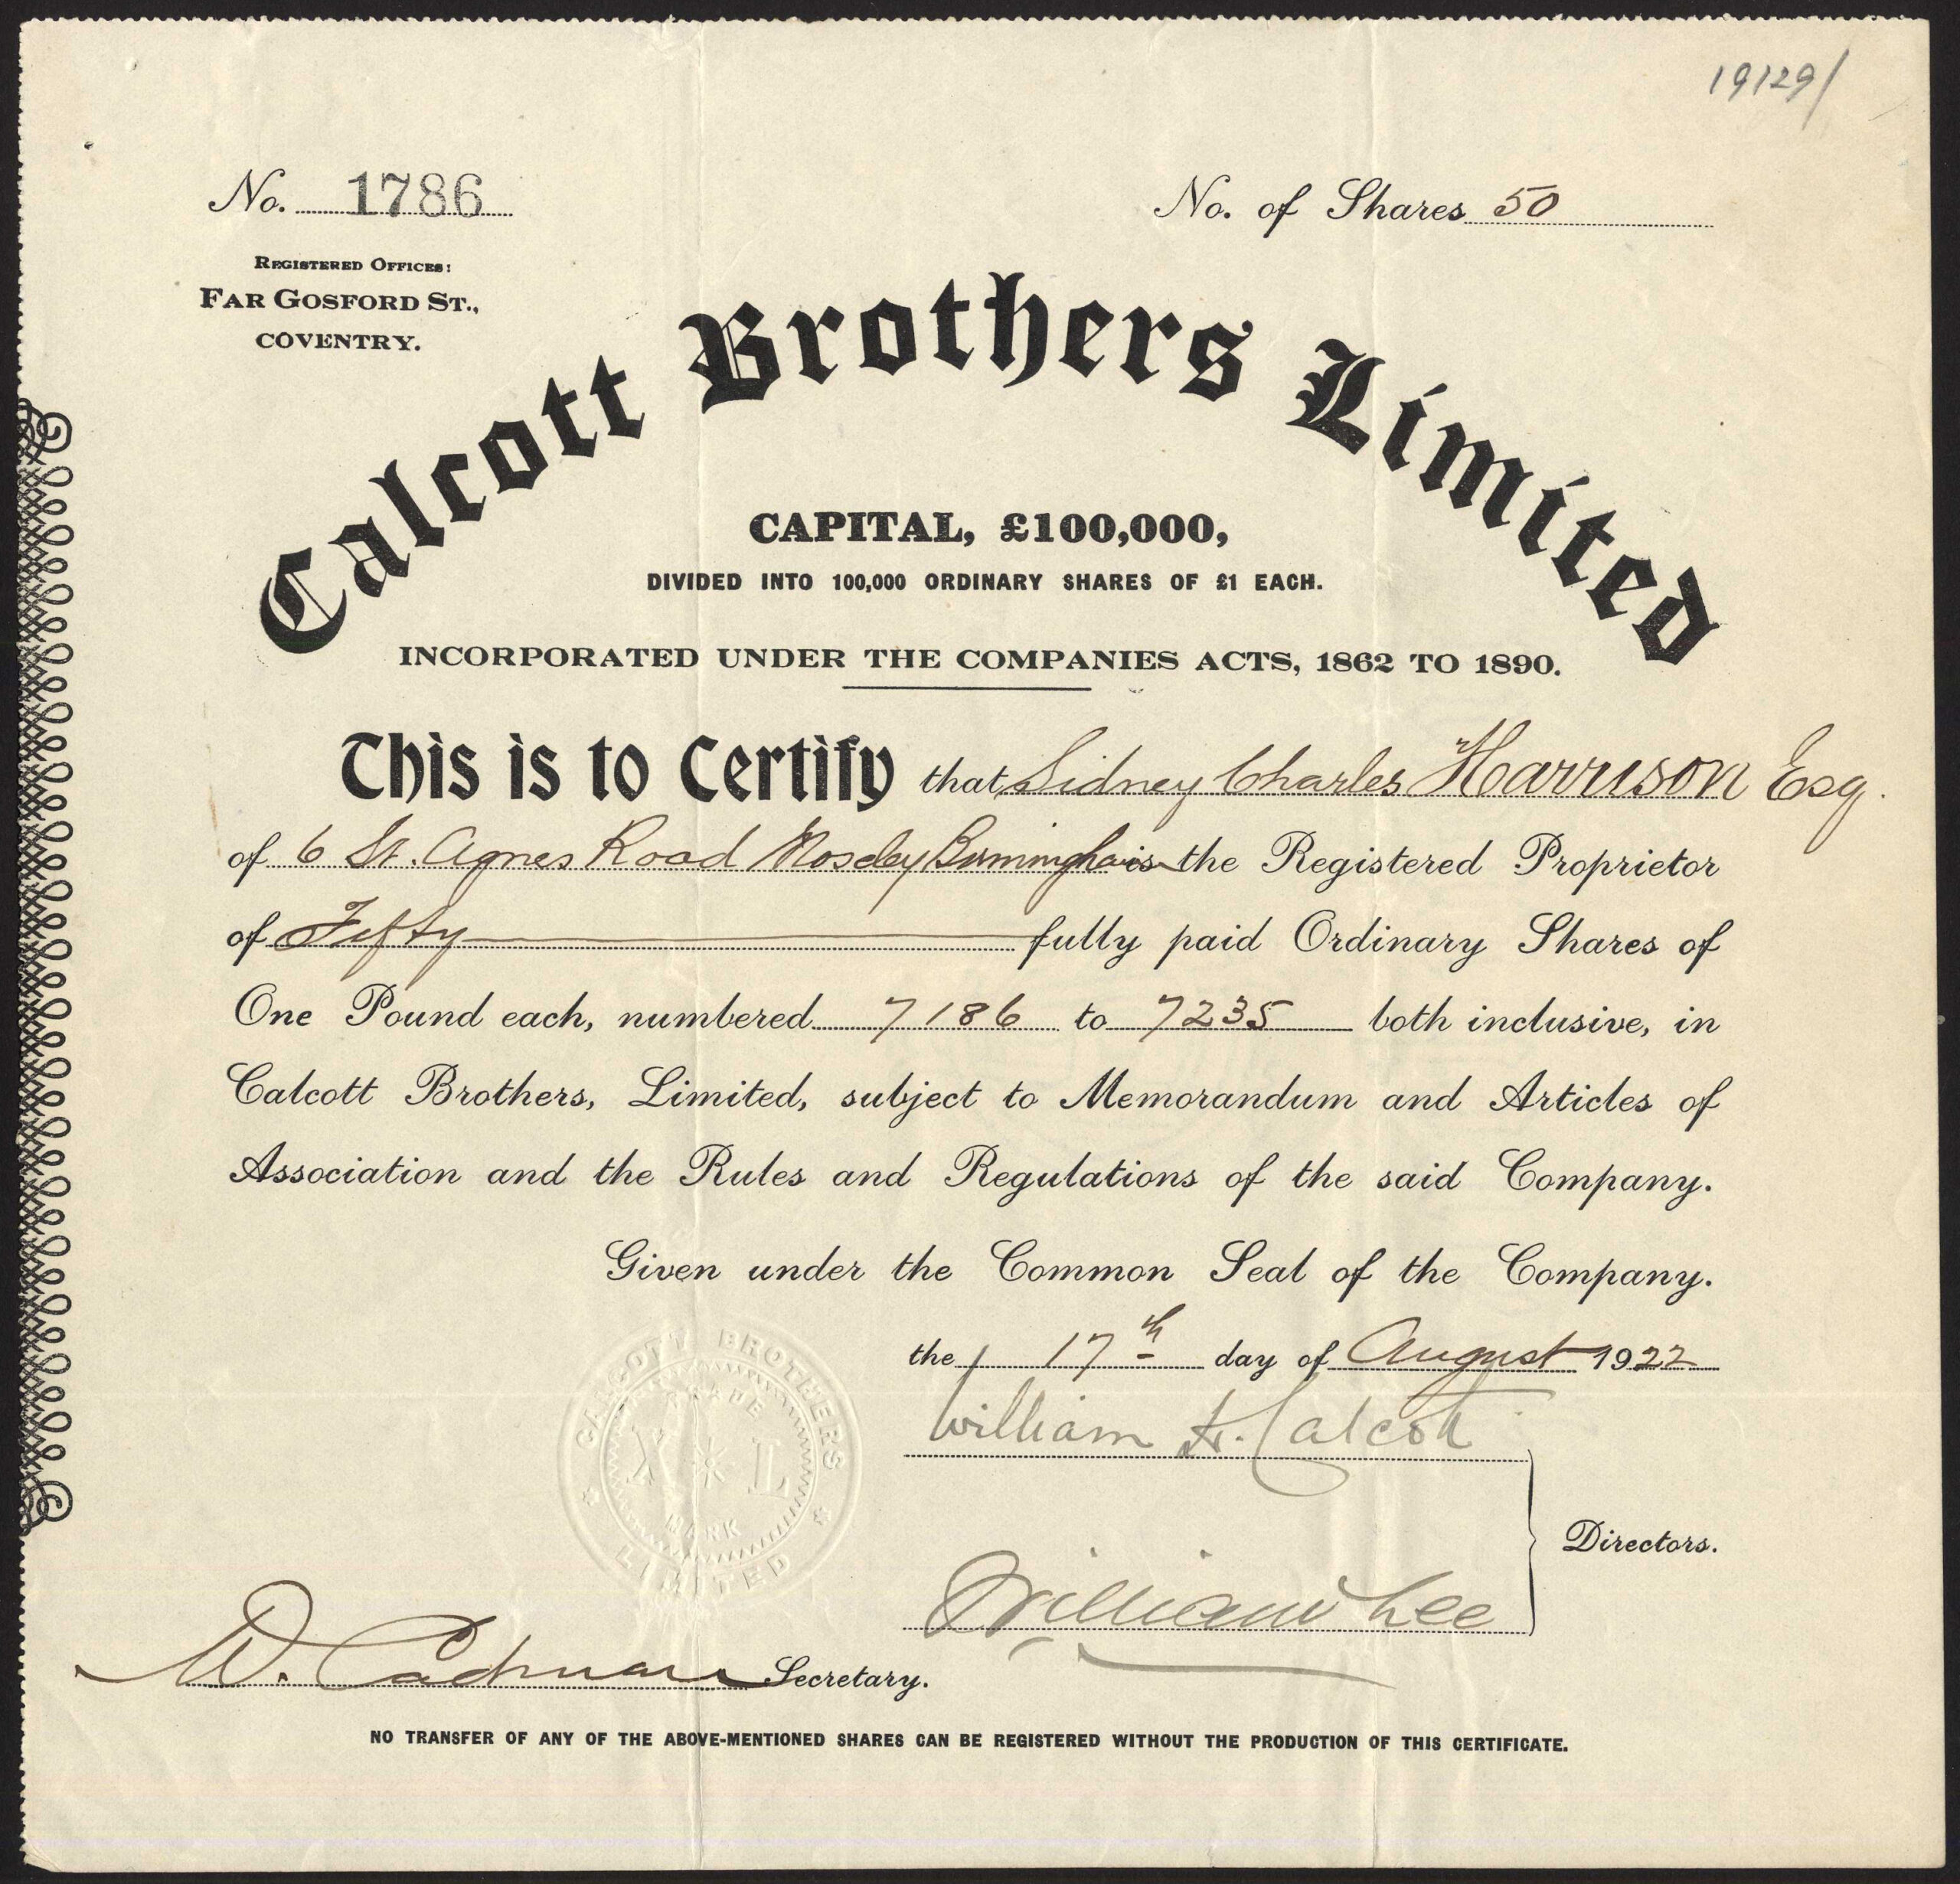 19129/
No. 1786
No. of Shares 50
REGISTERED OFFICES:
FAR GOSFORD ST.,
COVENTRY.
Calcott Brothers Limited
CAPITAL, £100,000,
DIVIDED INTO 100,000 ORDINARY SHARES OF £1 EACH.
INCORPORATED UNDER THE COMPANIES ACTS, 1862 TO 1890.
This is to Certify that Sidney Charles Harrison Esq.
of 6 St. Agnes Road Moseley Birmingham is the Registered Proprietor
of Fifty fully paid Ordinary Shares of
One Pound each, numbered 7186 to 7235 both inclusive, in
Calcott Brothers, Limited, subject to Memorandum and Articles of
Association and the Rules and Regulations of the said Company.
Given under the Common Seal of the Company.
the 17th day of August 1922
CALCOTT BROTHERS
TRADE
X L
MARK
LIMITED
William H. Calcott
Directors.
William Lee
W. Cadman Secretary.
NO TRANSFER OF ANY OF THE ABOVE-MENTIONED SHARES CAN BE REGISTERED WITHOUT THE PRODUCTION OF THIS CERTIFICATE.